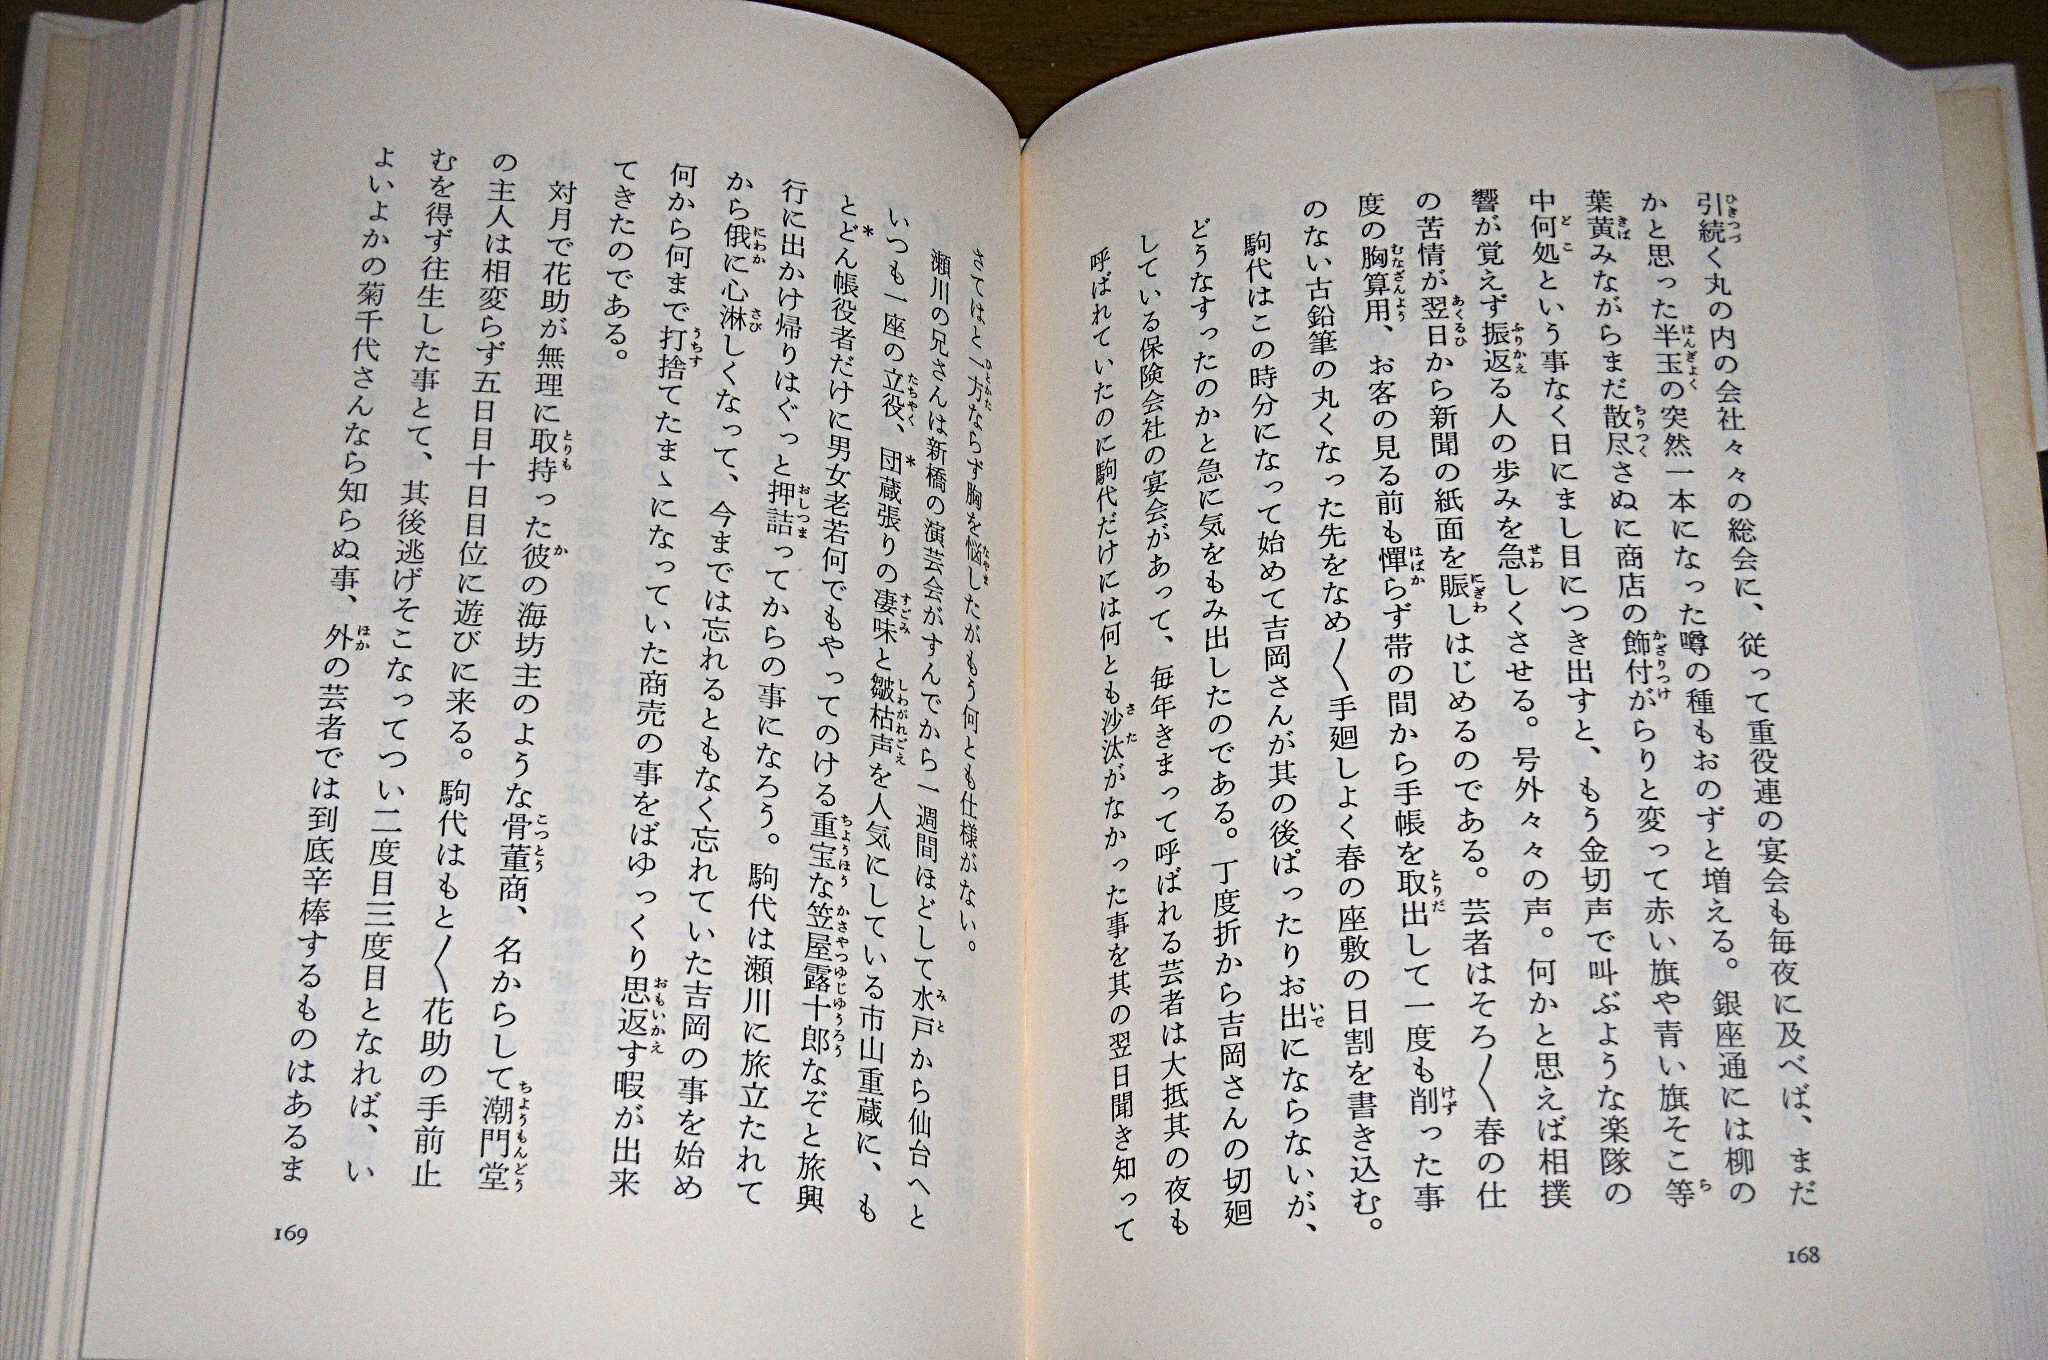 引続く丸の内の会社々々の総会に、従って重役連の宴会も毎夜に及べば、まだ
かと思った半玉の突然一本になった噂の種もおのずと増える。銀座通には柳の
葉黄みながらまだ散尽さぬに商店の飾付がらりと変って赤い旗や青い旗そこ等
中何処という事なく日にまし目につき出すと、もう金切声で叫ぶような楽隊の
響が覚えず振返る人の歩みを急しくさせる。号外々々の声。何かと思えば相撲
の苦情が翌日から新聞の紙面を賑しはじめるのである。芸者はそろ〳〵春の仕
度の胸算用、お客の見る前も憚らず帯の間から手帳を取出して一度も削った事
のない古鉛筆の丸くなった先をなめ〳〵手廻しよく春の座敷の日割を書き込む。
駒代はこの時分になって始めて吉岡さんが其の後ぱったりお出にならないが、
どうなすったのかと急に気をもみ出したのである。丁度折から吉岡さんの切廻
している保険会社の宴会があって、毎年きまって呼ばれる芸者は大抵其の夜も
呼ばれていたのに駒代だけには何とも沙汰がなかった事を其の翌日聞き知って
168
さてはと一方ならず胸を悩したがもう何とも仕様がない。
瀬川の兄さんは新橋の演芸会がすんでから一週間ほどして水戸から仙台へと
いつも一座の立役、団蔵張りの凄味と皺枯声を人気にしている市山重蔵に、も
とどん帳役者だけに男女老若何でもやってのける重宝な笠屋露十郎なぞと旅興
行に出かけ帰りはぐっと押詰ってからの事になろう。駒代は瀬川に旅立たれて
から俄に心淋しくなって、今までは忘れるともなく忘れていた吉岡の事を始め
何から何まで打捨てたまゝになっていた商売の事をばゆっくり思返す暇が出来
てきたのである。
対月で花助が無理に取持った彼の海坊主のような骨董商、名からして潮門堂
の主人は相変らず五日目十日目位に遊びに来る。駒代はもと〳〵花助の手前止
むを得ず往生した事とて、其後逃げそこなってつい二度目三度目となれば、い
よいよかの菊千代さんなら知らぬ事、外の芸者では到底辛棒するものはあるま
169